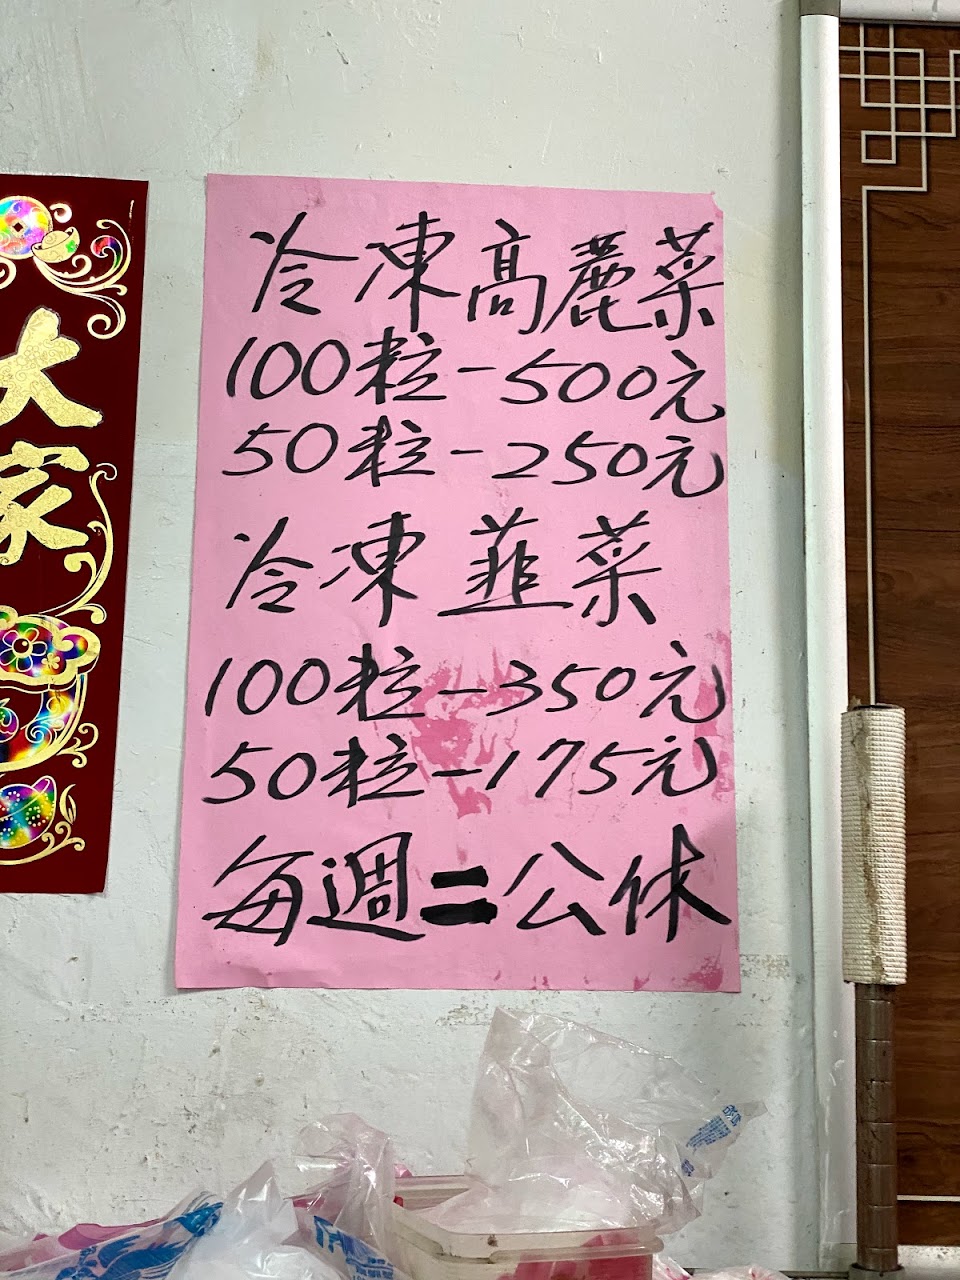 冷凍高麗菜
100粒-500元
50粒-250元
冷凍韮菜
100粒-350元
50粒-175元
每週二公休
大家